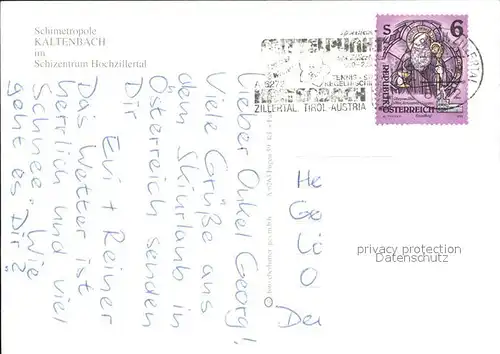 Schimetropole
KALTENBACH
im
Schizentrum Hochzillertal
Lieber Onkel Georg!
Viele Grüße aus
dem Skiurlaub in
Österreich senden
Dir
Evi + Reiner
Das Wetter ist
herrlich und viel
Schnee. Wie
geht es Dir?
ZILLERTAL, TIROL-AUSTRIA
S 6
REPUBLIK
ÖSTERREICH
He
Ge
O
De
privacy protection
Datenschutz